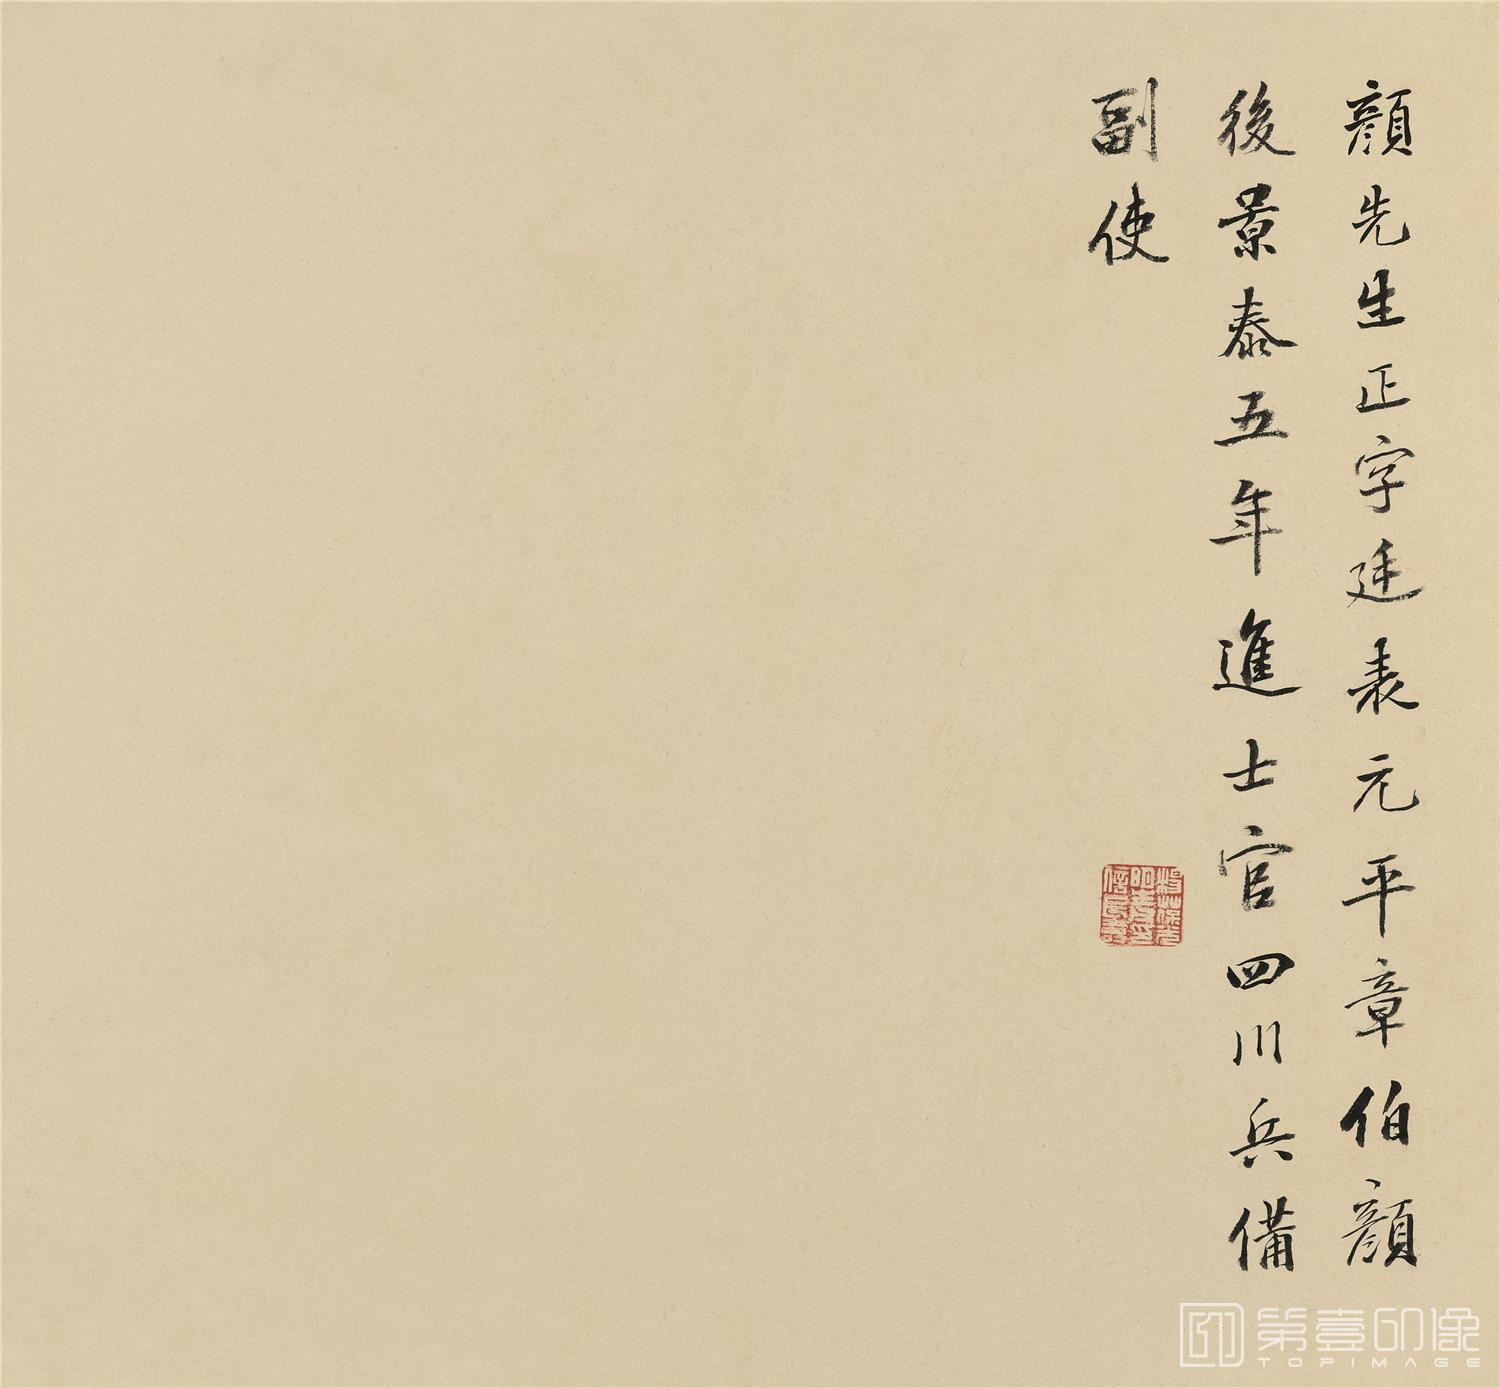 顔先生正字廷表元平章伯顔
後景泰五年進士官四川兵備
副使
第壹印像
TOPIMAGE